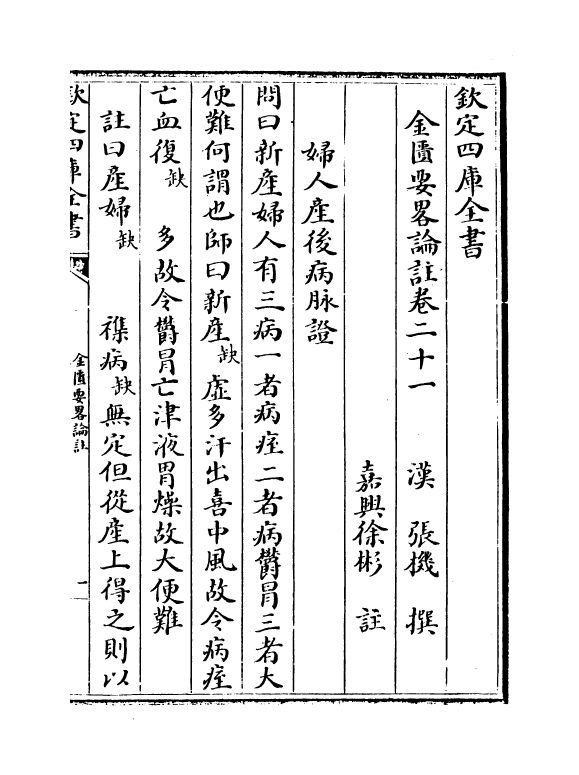 欽定四庫全書
金匱要畧論註卷二十一　漢　張機　撰
嘉興徐彬　註
婦人產後病脉證
問曰新產婦人有三病一者病痓二者病欝冒三者大
便難何謂也師曰新產缺虛多汗出喜中風故令病痓
亡血復缺　多故令欝冒亡津液胃燥故大便難
註曰產婦缺　　襍病缺無定但從產上得之則以
欽定四庫全書
金匱要畧論註
一